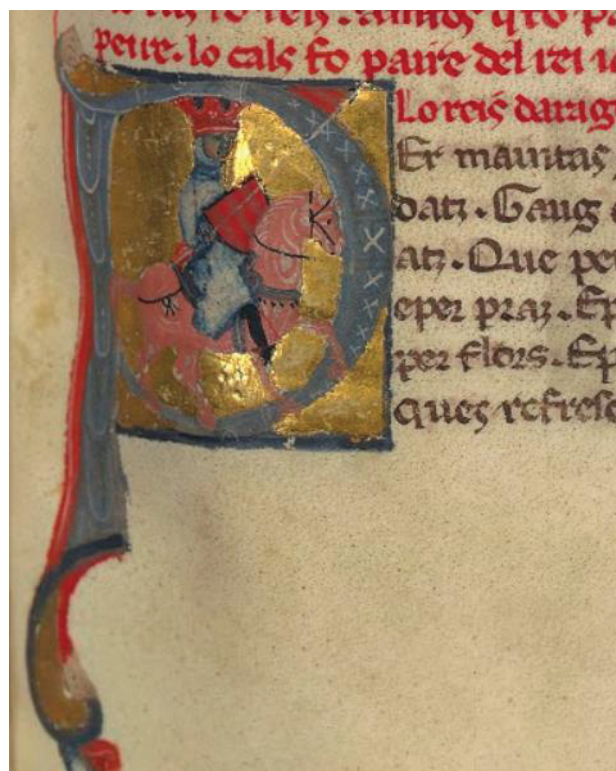 peire. lo cals fo paire del rei
Lo reis darag
PEr mantas
datz. Gaug
atz. Que pe
eper praz. Ep
per flors. Ep
ques refresc